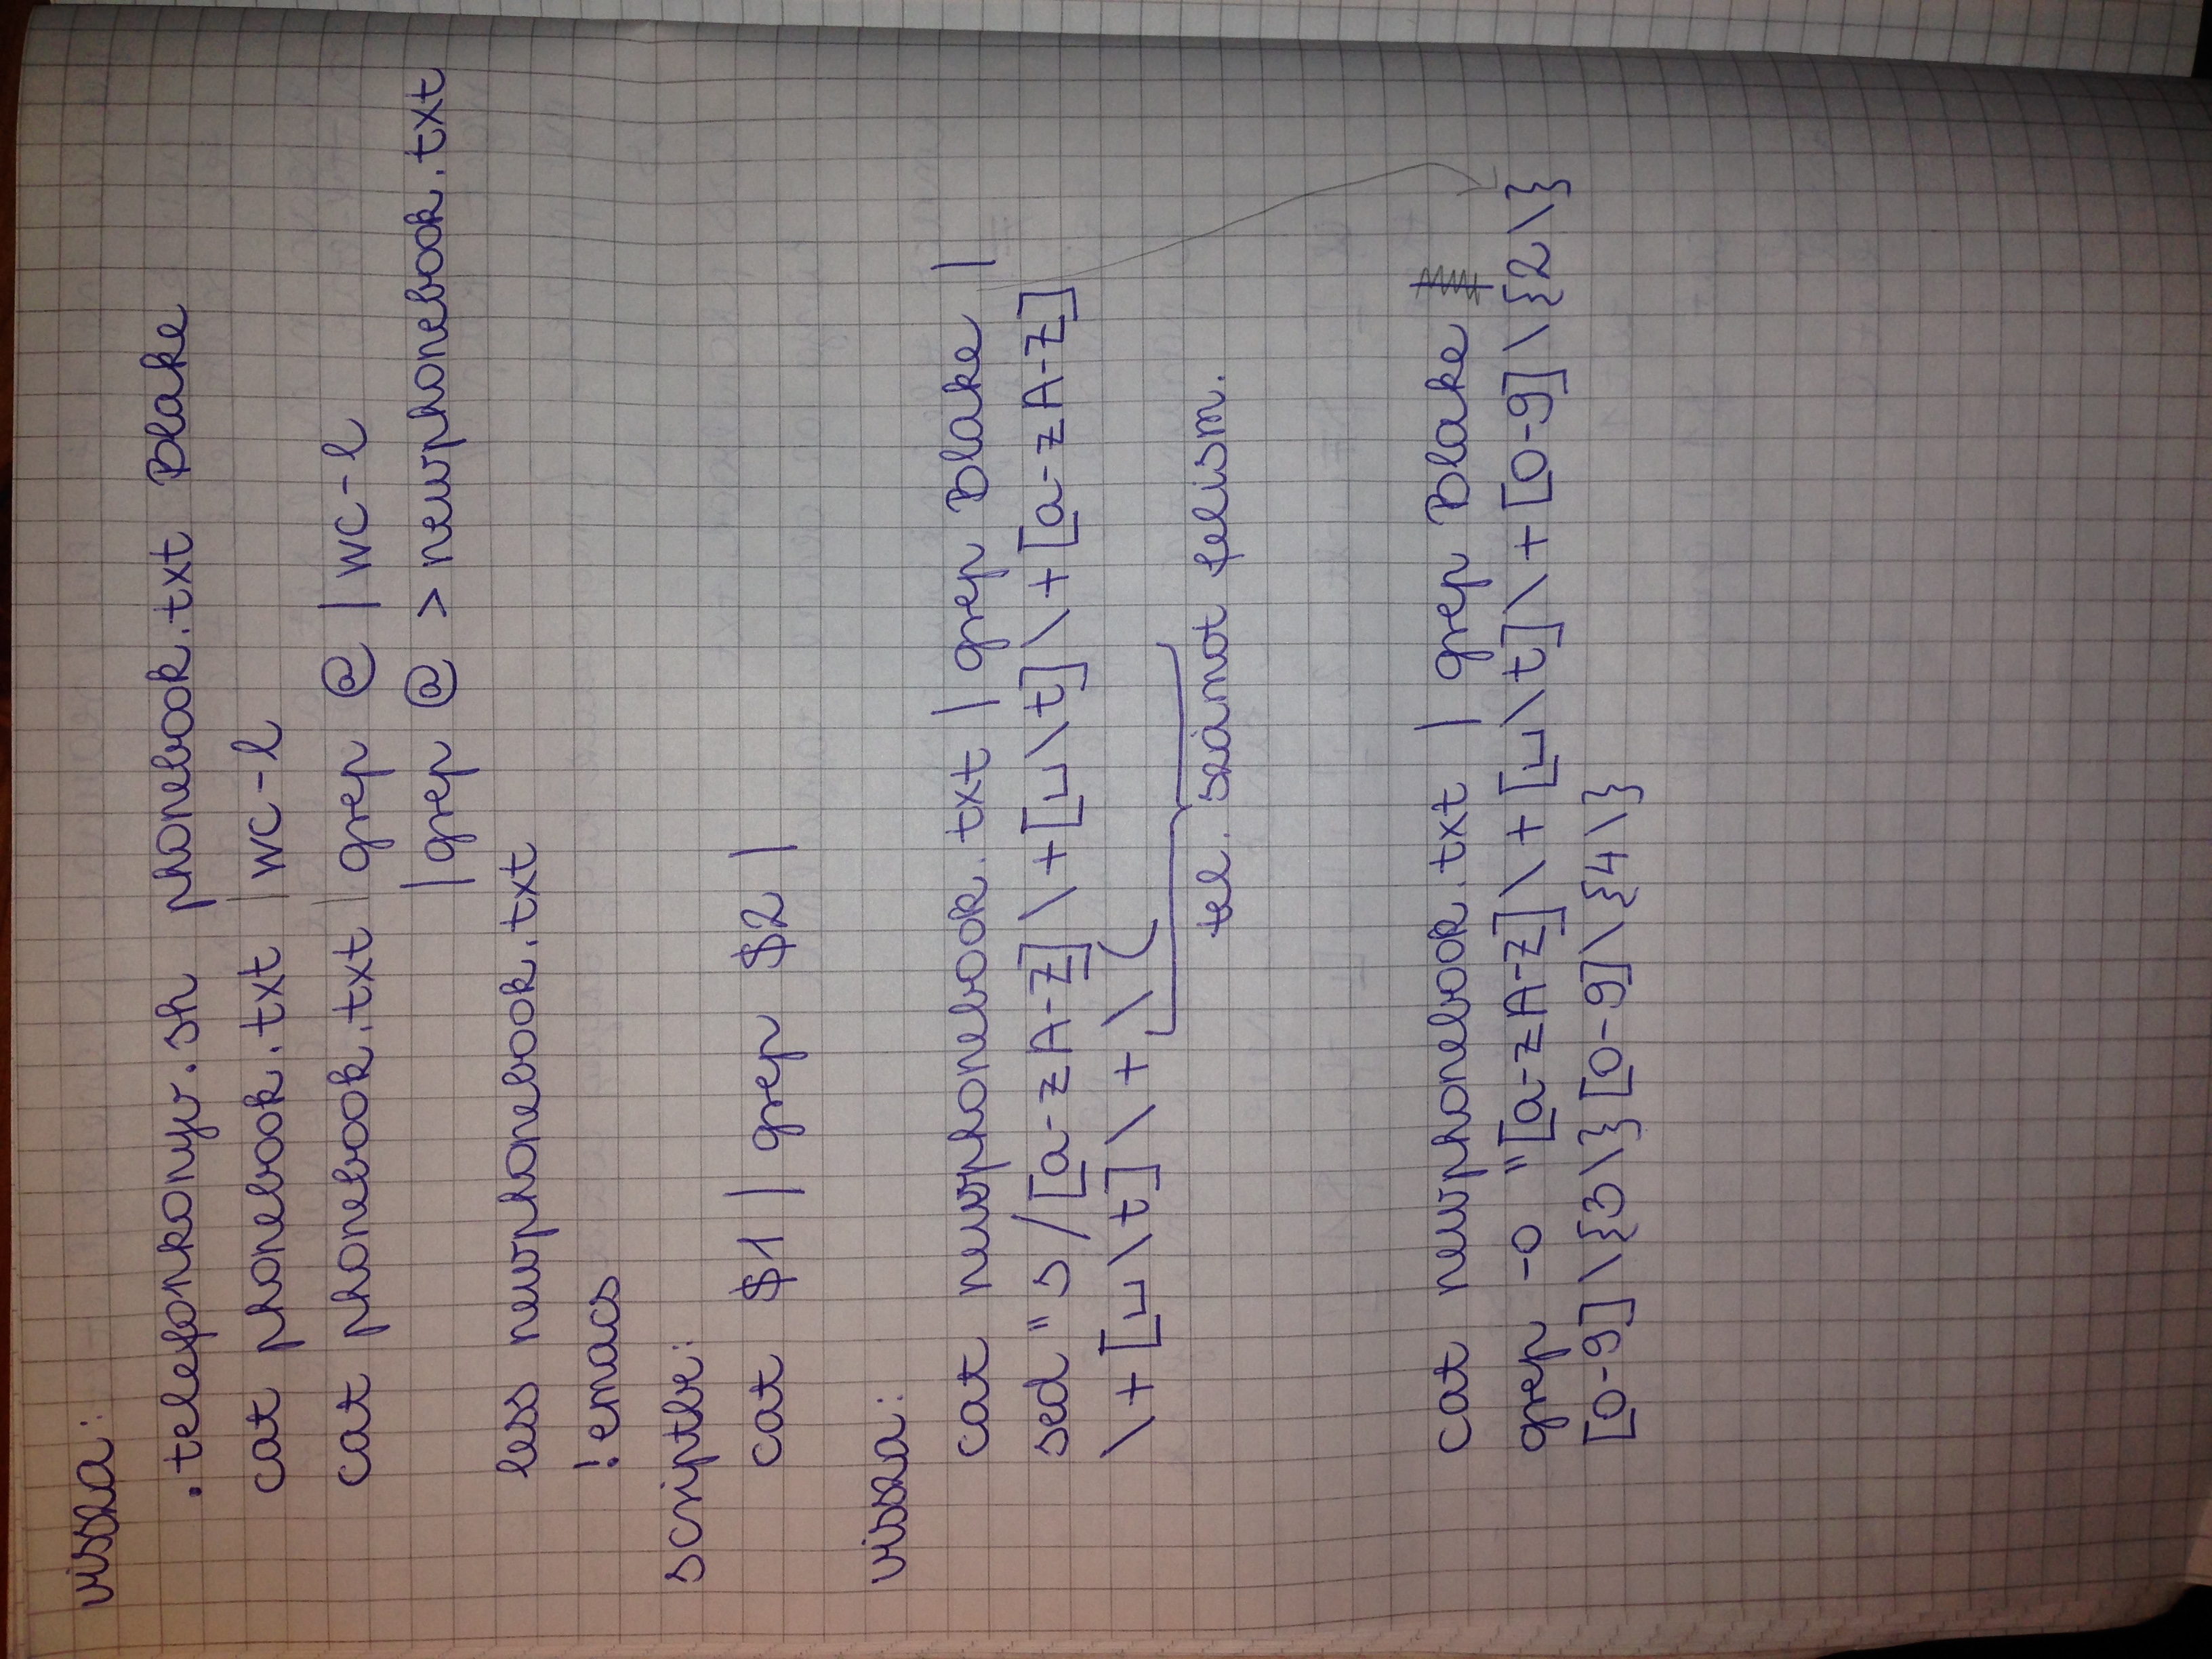 vissza:
.telefonkonyv.sh phonebook.txt Blake
cat phonebook.txt | wc -l
cat phonebook.txt | grep @ | wc -l
| grep @ > newphonebook.txt
less newphonebook.txt
!emacs
scriptbe:
cat $1 | grep $2 |
vissza:
cat newphonebook.txt | grep Blake |
sed "s/[a-zA-Z]\+[␣\t]\+[a-zA-Z]
\+[␣\t]\+\(
tel. számot felism.
cat newphonebook.txt | grep Blake
grep -o "[a-zA-Z]\+[␣\t]\+[0-9]\{2\}
[0-9]\{3\}[0-9]\{4\}